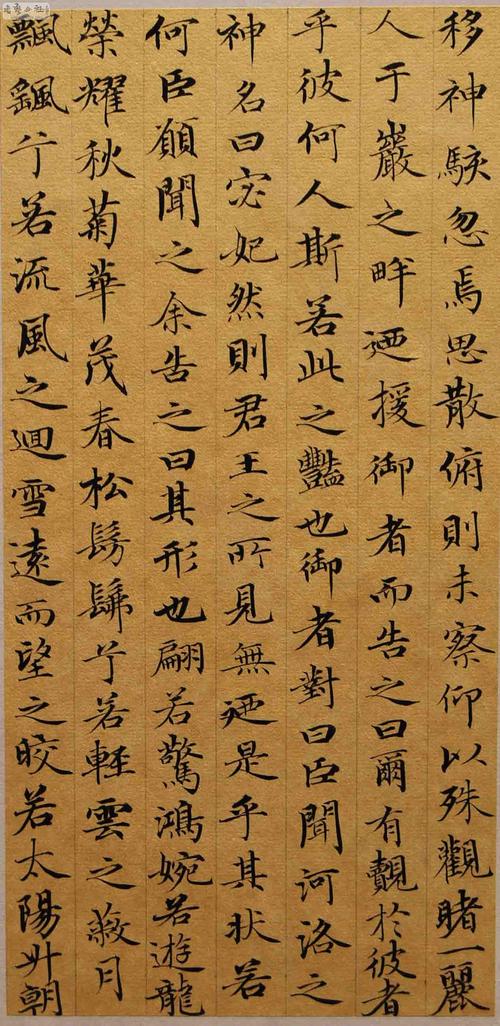 移神駭忽焉思散俯則未察仰以殊觀睹一麗
人于巖之畔迺援御者而告之曰爾有覿於彼者
乎彼何人斯若此之豔也御者對曰臣聞河洛之
神名曰宓妃然則君王之所見無迺是乎其狀若
何臣願聞之余告之曰其形也翩若驚鴻婉若遊龍
榮耀秋菊華茂春松髣髴兮若輕雲之蔽月
飄颻兮若流風之迴雪遠而望之皎若太陽升朝